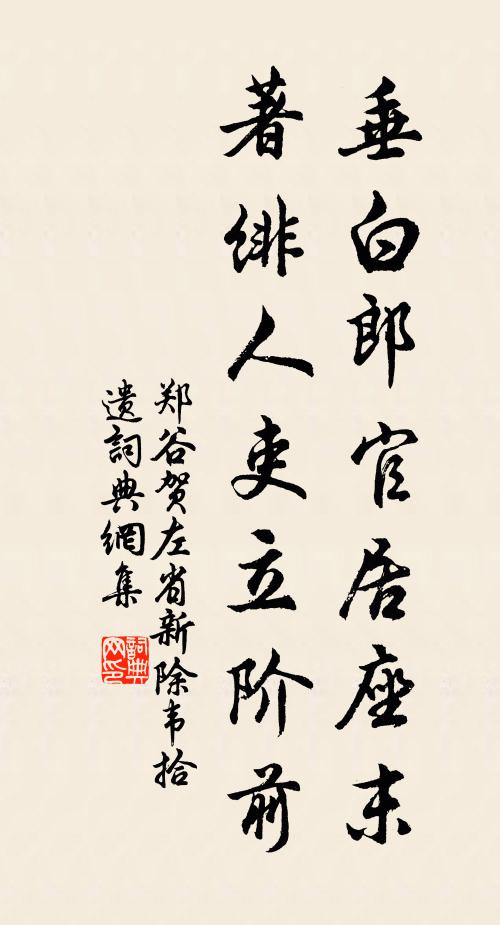 垂白郎官居座末
著绯人吏立阶前
郑谷贺左省新除韦拾
遗詞典網集
詞典网印